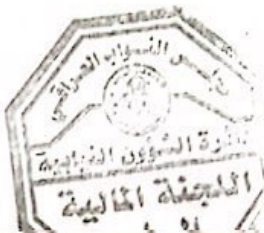 مجلس النواب العراقي
دائرة الشؤون النيابية
اللجنة المالية